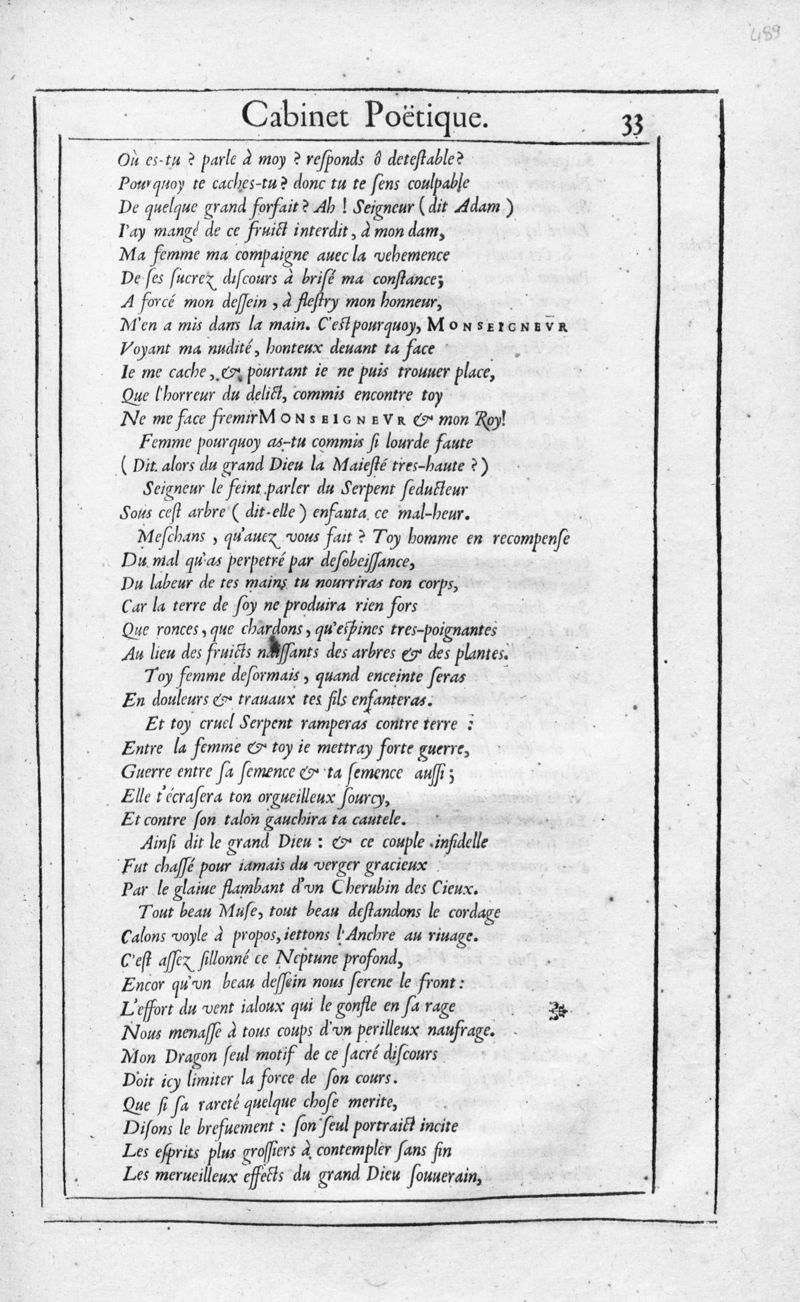 489
Cabinet Poëtique. 33
Où es-tu ? parle à moy ? reſponds ô deteſtable ?
Pourquoy te caches-tu ? donc tu te ſens coulpable
De quelque grand forfait ? Ah ! Seigneur ( dit Adam )
I'ay mangé de ce fruict interdit, à mon dam,
Ma femme ma compaigne auec la vehemence
De ſes ſucrez diſcours à briſé ma conſtance;
A forcé mon deſſein, à fleſtry mon honneur,
M'en a mis dans la main. C'eſt pourquoy, MONSEIGNEVR
Voyant ma nudité, honteux deuant ta face
Ie me cache, & pourtant ie ne puis trouuer place,
Que l'horreur du delict, commis encontre toy
Ne me face fremir MONSEIGNEVR & mon Roy!
Femme pourquoy as-tu commis ſi lourde faute
( Dit alors du grand Dieu la Maieſté tres-haute ? )
Seigneur le feint parler du Serpent ſeducteur
Sous ceſt arbre ( dit-elle ) enfanta ce mal-heur.
Meſchans, qu'auez vous fait ? Toy homme en recompenſe
Du mal qu'as perpetré par deſobeiſſance,
Du labeur de tes mains tu nourriras ton corps,
Car la terre de ſoy ne produira rien fors
Que ronces, que chardons, qu'eſpines tres-poignantes
Au lieu des fruicts naiſſants des arbres & des plantes.
Toy femme deſormais, quand enceinte ſeras
En douleurs & trauaux tes fils enfanteras.
Et toy cruel Serpent ramperas contre terre :
Entre la femme & toy ie mettray forte guerre,
Guerre entre ſa ſemence & ta ſemence auſſi;
Elle t'écraſera ton orgueilleux ſourcy,
Et contre ſon talon gauchira ta cautele.
Ainſi dit le grand Dieu : & ce couple infidelle
Fut chaſſé pour iamais du verger gracieux
Par le glaiue flambant d'vn Cherubin des Cieux.
Tout beau Muſe, tout beau deſtandons le cordage
Calons voyle à propos, iettons l'Anchre au riuage.
C'eſt aſſez ſillonné ce Neptune profond,
Encor qu'vn beau deſſein nous ſerene le front :
L'effort du vent ialoux qui le gonfle en ſa rage
Nous menaſſe à tous coups d'vn perilleux naufrage.
Mon Dragon ſeul motif de ce ſacré diſcours
Doit icy limiter la force de ſon cours.
Que ſi ſa rareté quelque choſe merite,
Diſons le brefuement : ſon ſeul portraict incite
Les eſprits plus groſſiers à contempler ſans fin
Les merueilleux effects du grand Dieu ſouuerain,